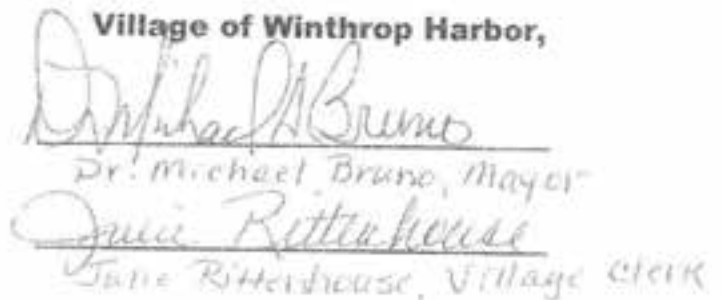 Village of Winthrop Harbor,
Dr. Michael A Bruno
Dr. Michael Bruno, Mayor
Rittenhouse
Rittenhouse, Village Clerk